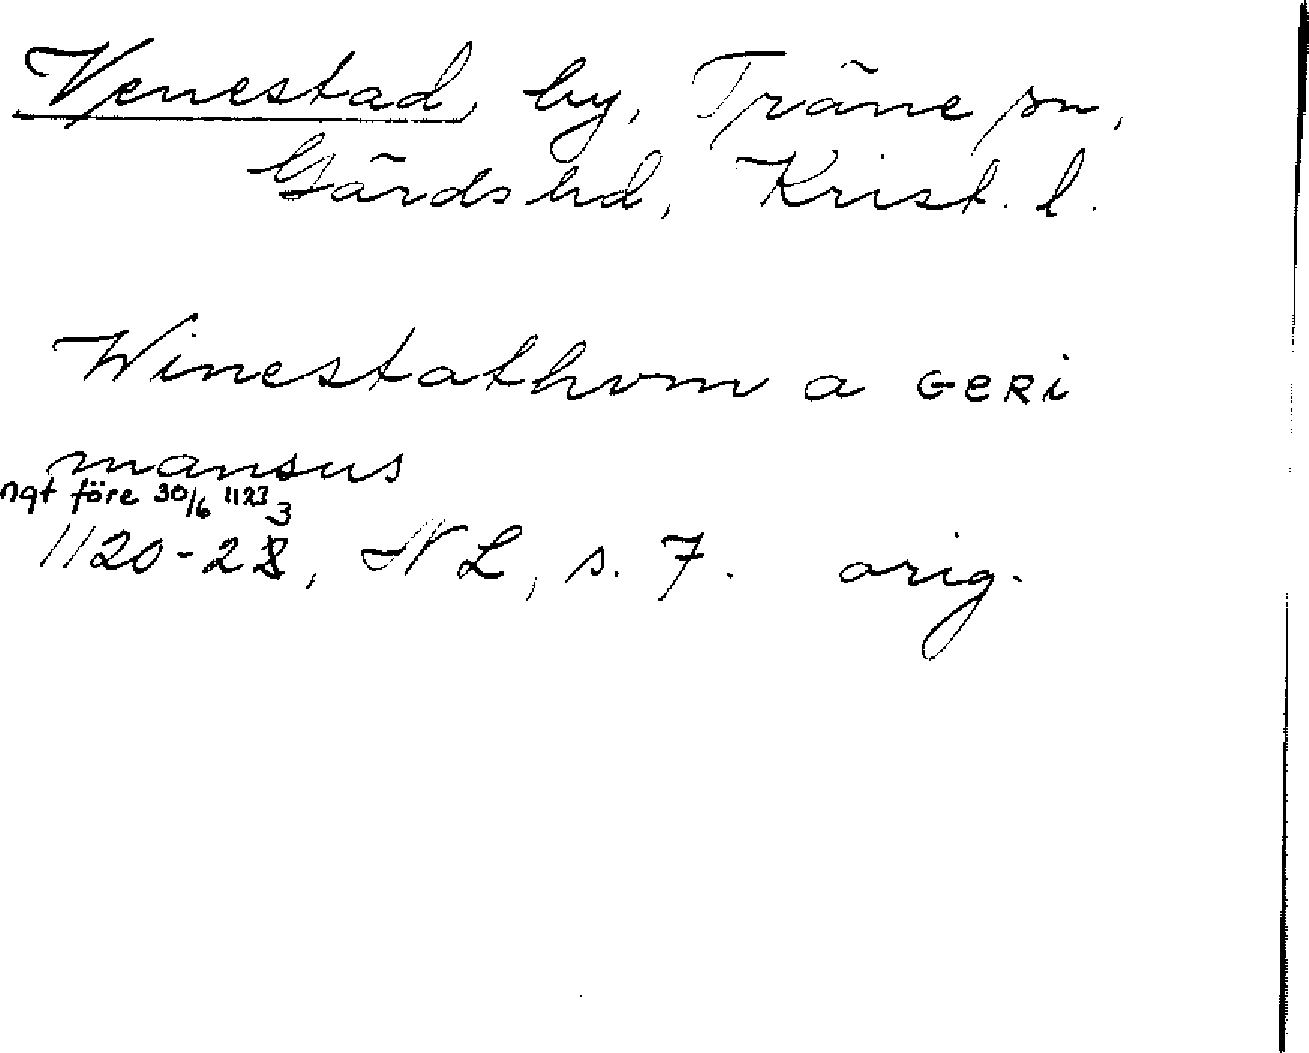 Venestad, by, Träne sn,
Gärds hd, Krist. l.
Winestathvm a GeRi
mansus
ngt före 30/6 1123
3
1120-28, NL, s. 7. orig.